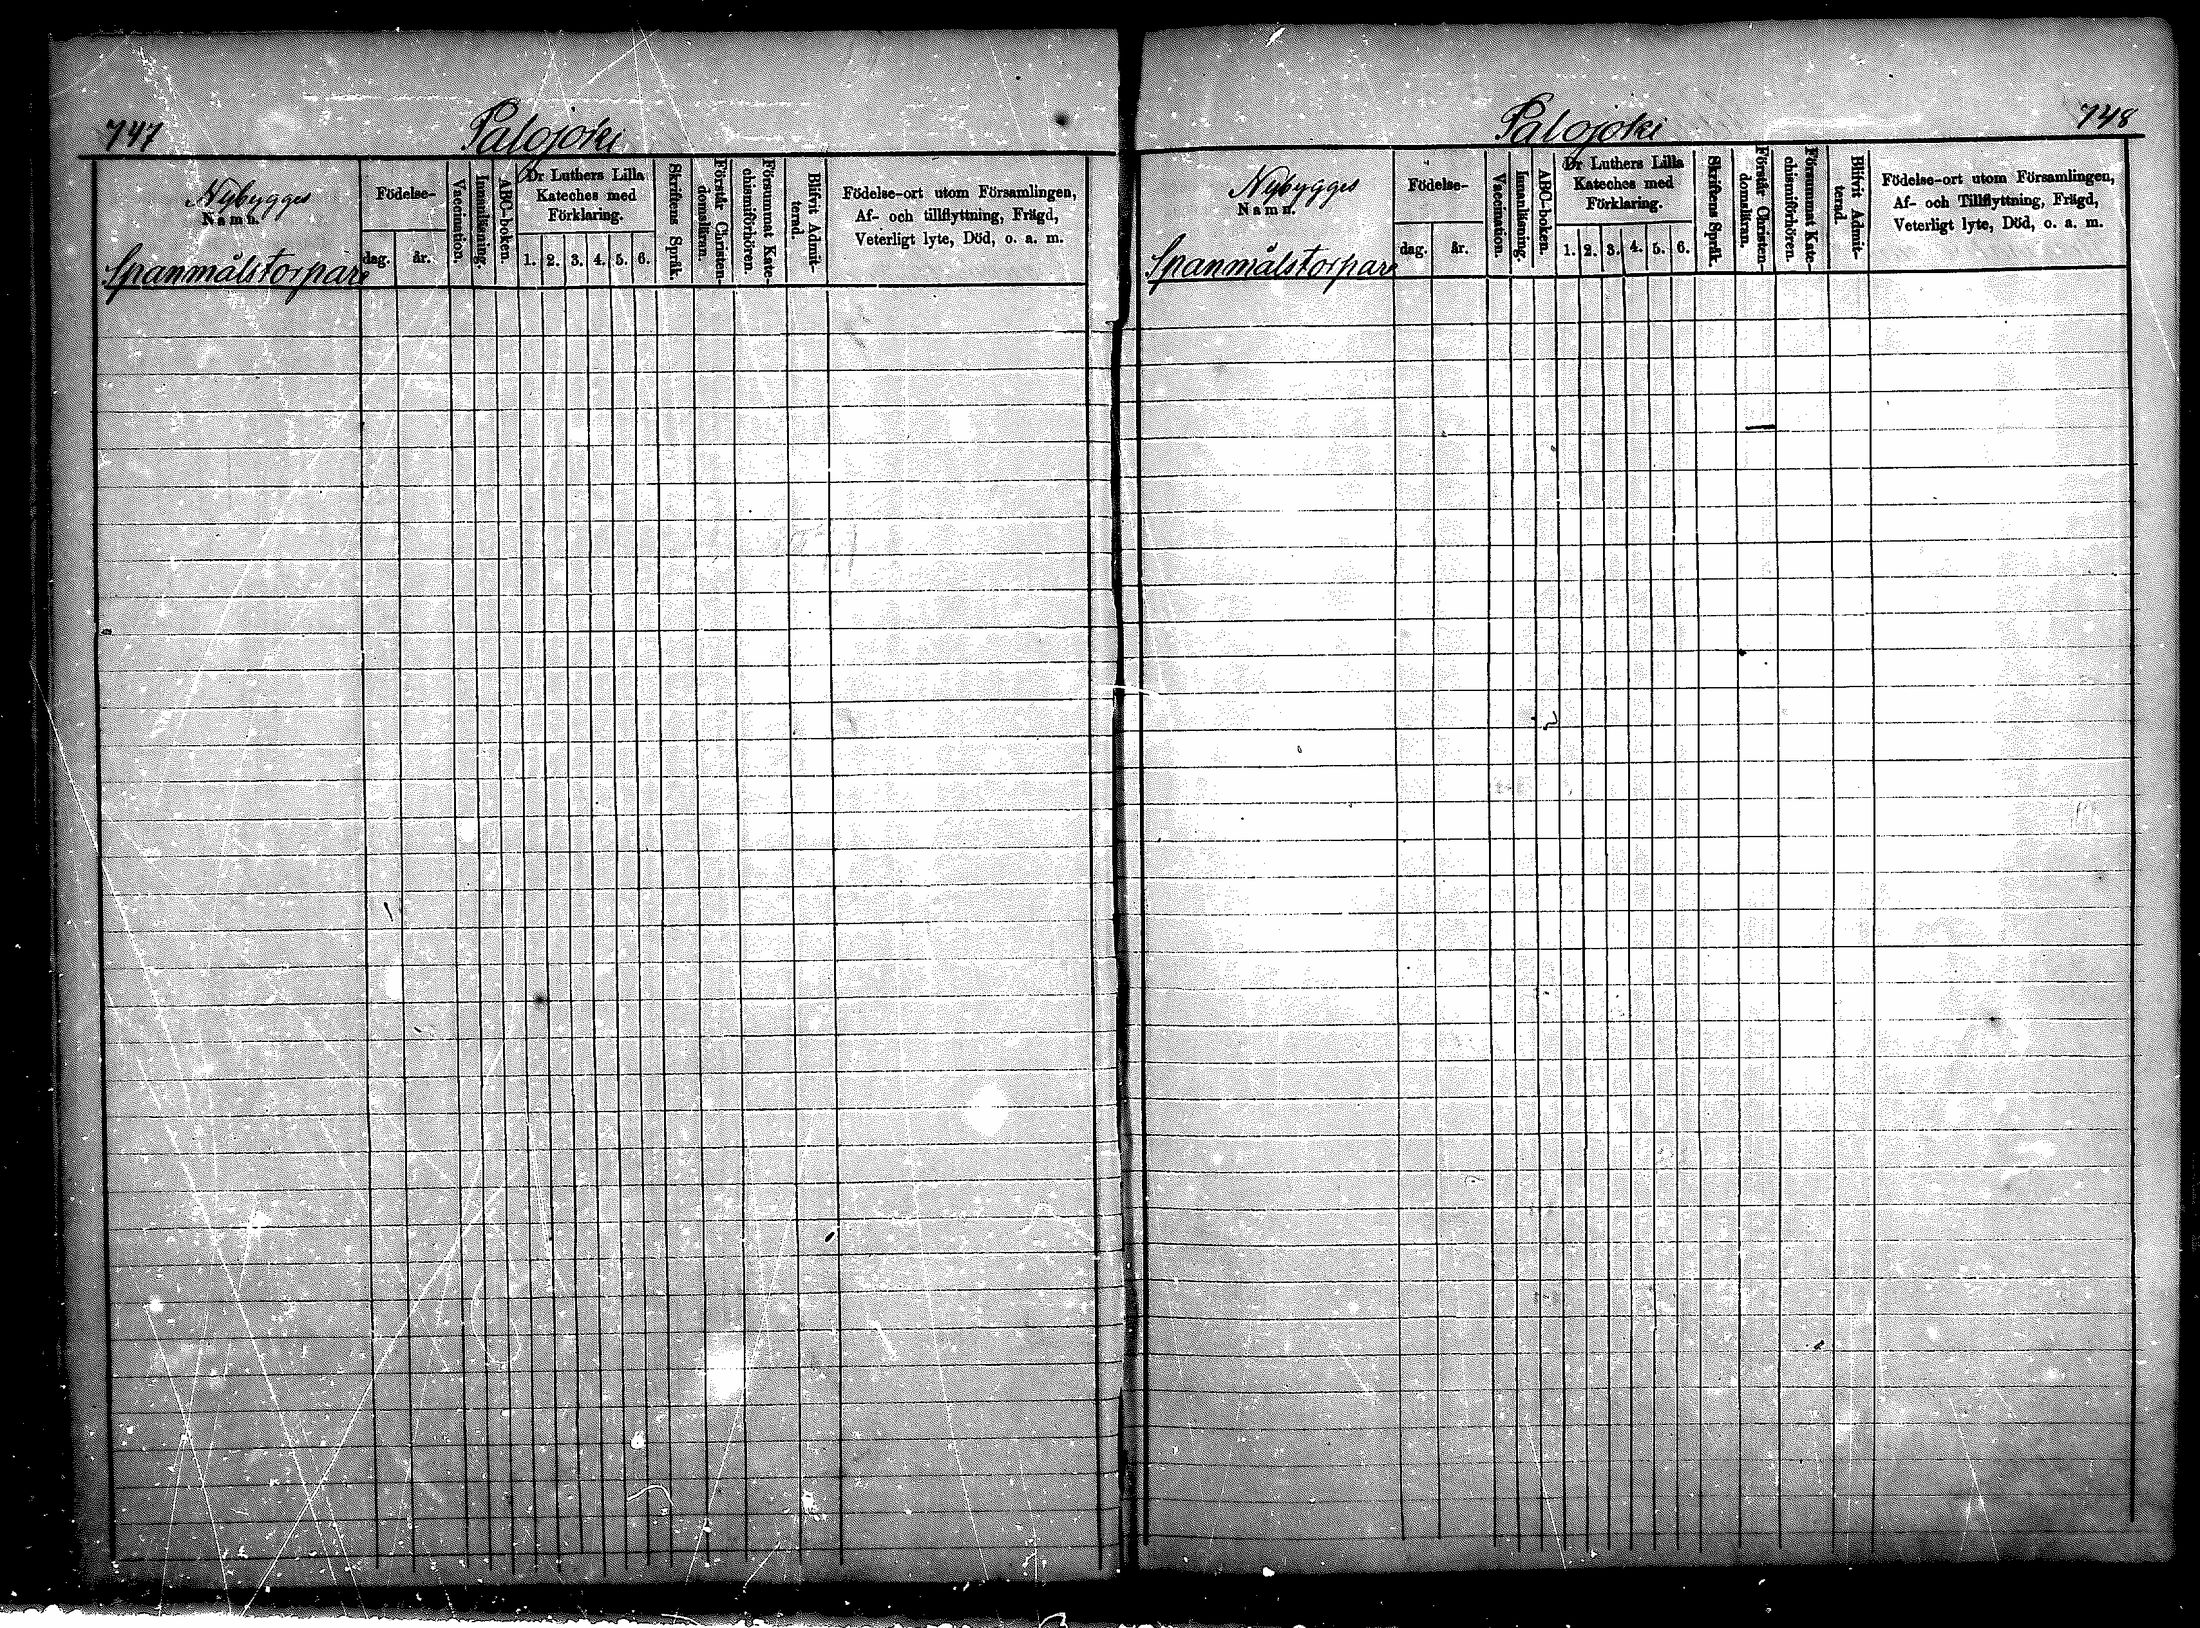 747
Palojoki
Nybygges
Namn.
Spanmålstorpare
Födelse-
dag.
år.
Vaccination.
Innanläsning.
ABC-boken.
Dr Luthers Lilla
Kateches med
Förklaring.
1. 2. 3. 4. 5. 6.
Skriftens Språk.
Förstår Christen-
domsläran.
Försummat Kate-
chismiförhören.
Blifvit Admit-
terad.
Födelse-ort utom Församlingen,
Af- och tillflyttning, Frägd,
Veterligt lyte, Död, o. a. m.
748
Palojoki
Nybygges
Namn.
Spanmålstorpare
Födelse-
dag.
år.
Vaccination.
Innanläsning.
ABC-boken.
Dr Luthers Lilla
Kateches med
Förklaring.
1. 2. 3. 4. 5. 6.
Skriftens Språk.
Förstår Christen-
domsläran.
Försummat Kate-
chismiförhören.
Blifvit Admit-
terad.
Födelse-ort utom Församlingen,
Af- och Tillflyttning, Frägd,
Veterligt lyte, Död, o. a. m.